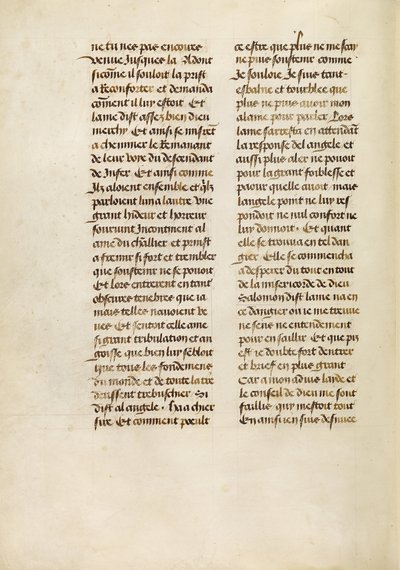 ne tu nes pas encores
venue Jusques la Adont
si cõme il souloit la prist
a Reconforter et demanda
cõment il luy estoit Et
lame dist assez bien dieu
mercy Et ainsi se misrẽt
a cheminer le Remanant
de leur voye du descendant
de Infer Et ainsi comme
Ilz aloient ensemble et qlz
parloient lun a lautre Vne
grant hideur et horreur
souruint Incontinent al
ame du chłlier et prinst
a fremir si fort et trembler
que soustenir ne se pouoit
Et lors entrerent en tant
obscures tenebres que ia
mais telles nauoient ve
ues Et sentoit celle ame
si grant tribulation et an
goisse que bien luy sẽbloit
que tous les fondemens
du monde et de toute la tre
deussent trebuschier Si
dist al angele · Ha a chier
sire Et comment poeult
ce estre que plus ne me scay
ne puis soustenir comme
Je souloie Je suis tant
esbahie et tourblee que
plus ne puis auoir mon
alaine pour parler Lors
lame sarresta en attendãt
la response del angele et
aussi plus aler ne pouoit
pour la grant foiblesse et
paour quelle auoit mais
langele point ne luy res
pondoit ne nul confort ne
luy donnoit · Et quant
elle se trouua en tel dan
gier Elle se commencha
a desperer du tout en tout
de la misericorde de dieu
Salomon dist lame na en
ce dangier ou ie me treuue
ne sens ne entendement
pour en saillir Et que pis
est ie doubte fort dentrer
et brief en plus grant
Car a mon aduis laide et
le conseil de dieu me sont
faillis quy mestoit tout
Et ainsi en suis desnuee